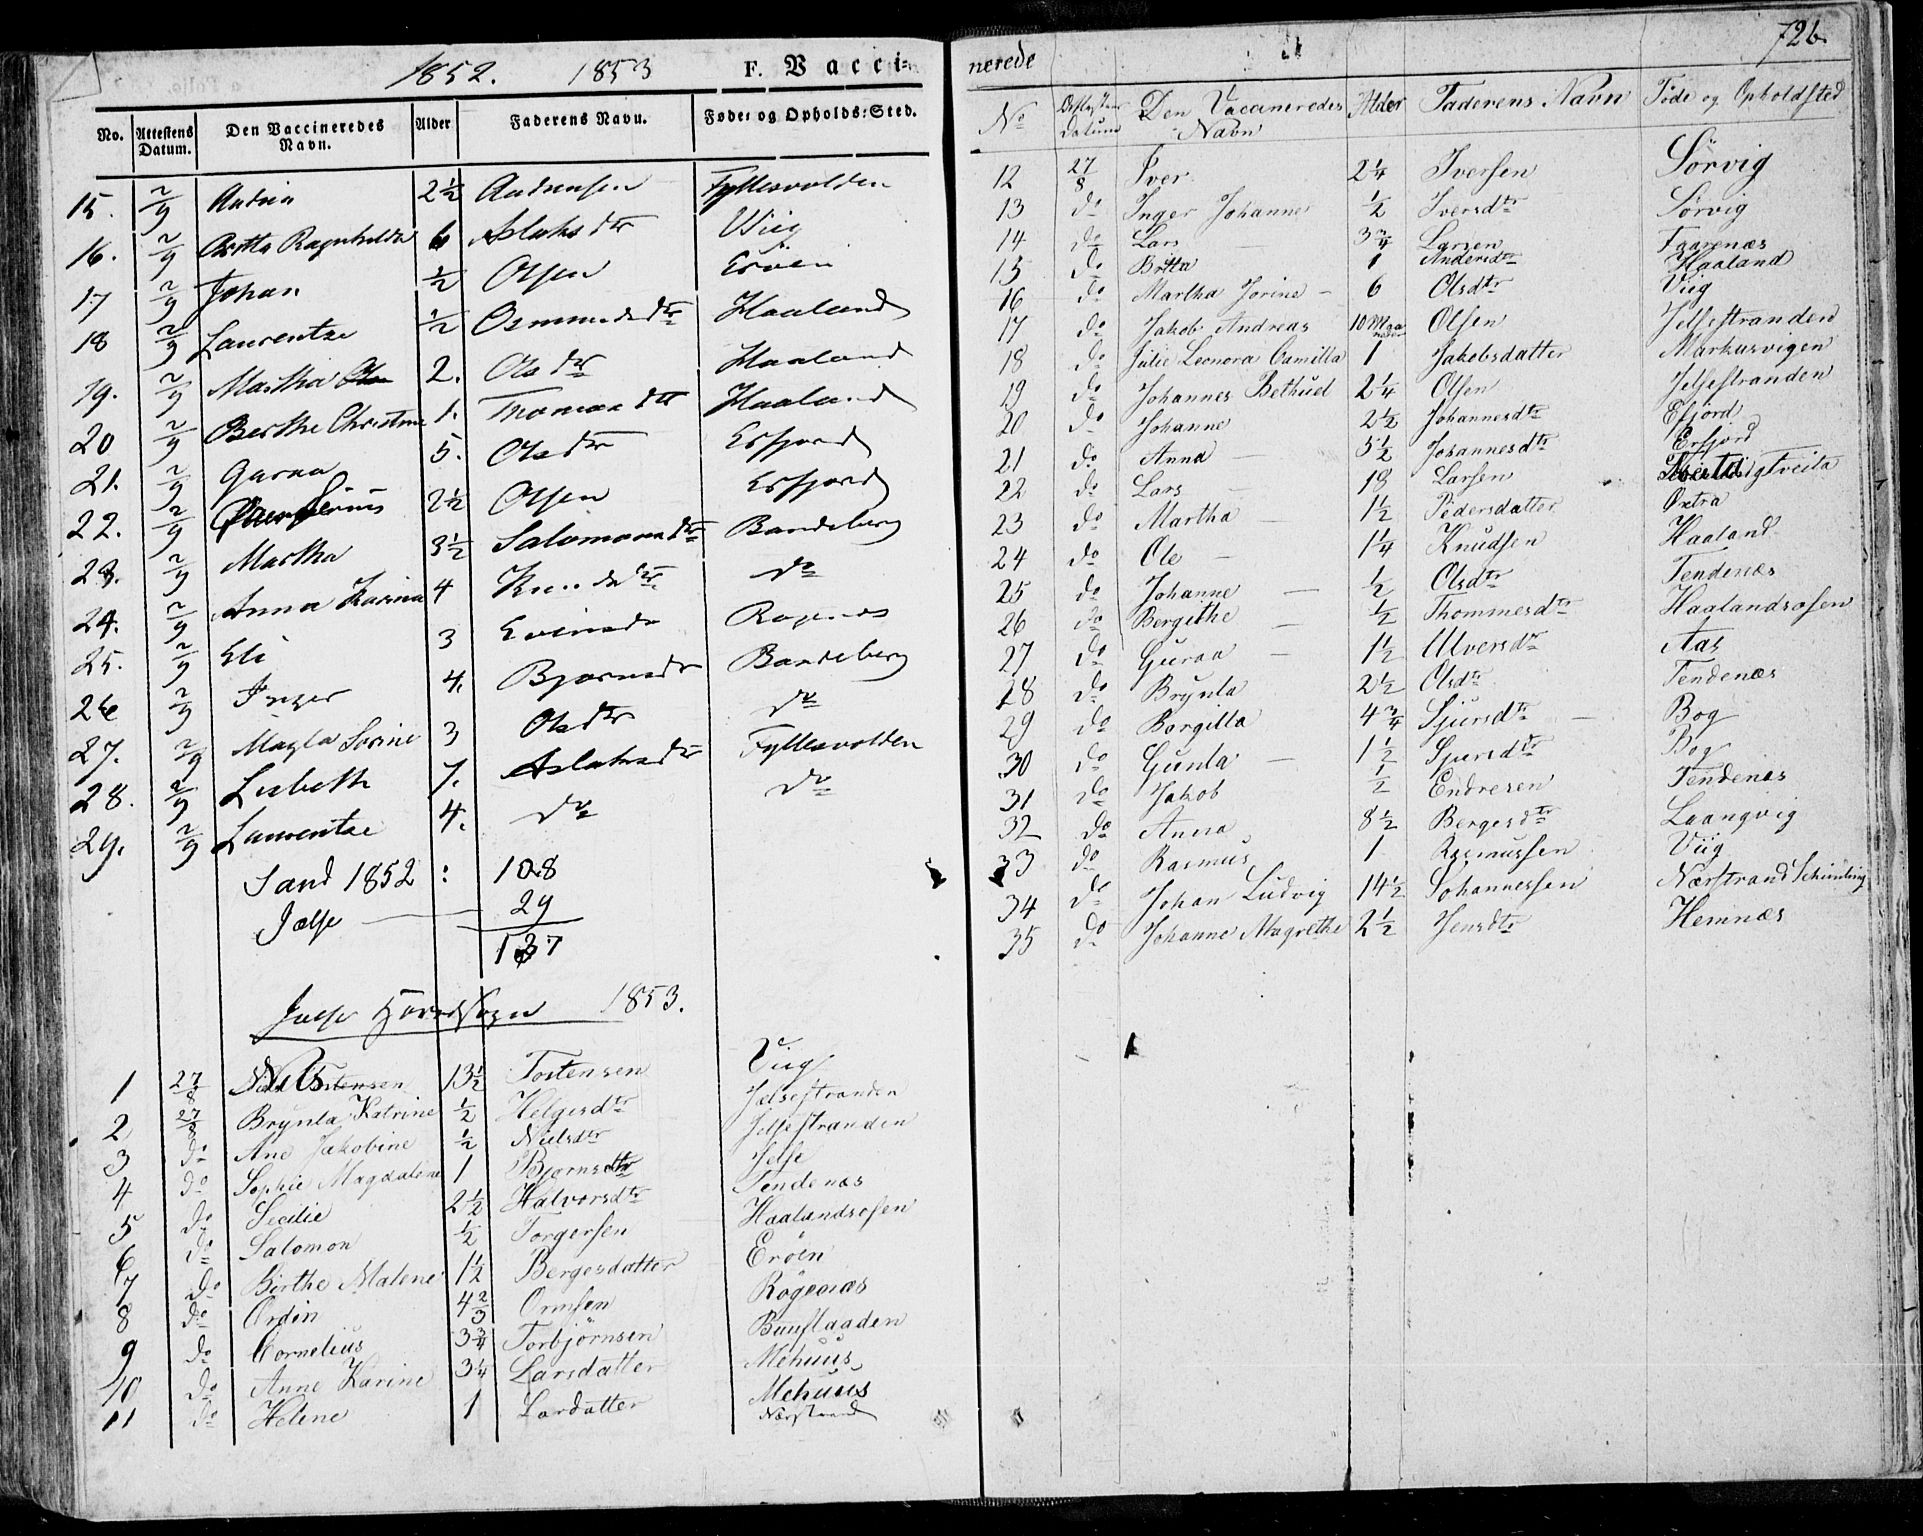 1852. 1853 F. Vacci-
No. Attestens Datum. Den Vaccineredes Navn. Alder Faderens Navn. Føde- og Opholds-Sted.
15. 2/9 2½ Andersen Fyllesvolden
16. 2/9 Britta Ragnhilda 6 Aslaksdtr Viig
17 2/9 Johan ½ Olsen Eröen
18 2/9 Laurentze ½ Osmundsdtr Haaland
19. 2/9 Martha 2. Olsdtr Haaland
20 2/9 Berthe Christine 1. Thomasdtr Haaland
21. 2/9 Guraa 5. Olsdtr Erfjord
22. 2/9 2½ Olsen Erfjord
23. 2/9 Martha 3½ Salomonsdtr Bandeberg
24. 2/9 Anna Karina 4 Knudsdtr do
25. 2/9 Eli 3
26 2/9 Inger 4. Bjørnsdtr Bandeberg
27. 2/9 Magla Sorine 3 Olsdtr do
28. 2/9 Lisbeth 7. Aslaksdtr Fyllesvolden
29. 2/9 Laurentze 4. do do
Sand 1852 : 108
Jelse 29
137
Jelse Hovedsogn 1853.
1 27/8 Nils Tostensen 13½ Tostensen Viig
2 27/8 Brynla Katrine ½ Helgesdtr Jelsestranden
3 do Ane Jakobine ½ Nielsdtr Jelsestranden
4 do Sophie Magdalene 1 Bjørnsdtr Jelse
5 do Secilie 2½ Halvorsdtr Tendenæs
6 do Salomon ½ Torgersen Haalandsosen
7 do Birthe Malene 1½ Bergesdatter Eröen
8 do Ordin 4⅔ Ormsen Rögenæs
9 do Cornelius 3¾ Torbjörnsen Buuflaaden
10 do Anne Karine 3¼ Larsdatter Mehuus
11 do Helene 1 Lardatter Mehuus
Nærstrand
nerede 726.
No Attestens Datum Den Vaccineredes Navn Alder Faderens Navn Føde og Opholdsted
12 27/8 Iver 2¼ Iversen Sörvig
13 do Inger Johanne ½ Iversdtr Sörvig
14 do Lars 3¾ Larsen Faarenæs
15 do Britta 1 Andersdtr Haaland
16 do Martha Jorine 6 Olsdtr Viig
17 do Jakob Andreas 10 Maaneder Olsen Jelsestranden
18 do Julie Leonora Camilla 1 Jakobsdatter Markusvigen
19 do Johannes Bethuel 2¼ Olsen Jelsestranden
20 do Johanne 2½ Johannesdtr Efjord
21 do Anna 5½ Johannesdtr Erfjord
22 do Lars 18 Larsen
23 do Martha 1½ Pedersdatter Oxtra
24 do Ole 1¼ Knudsen Haaland
25 do Johanne ½ Olsdtr Tendenæs
26 do Bergithe ½ Thommesdtr Haalandsosen
27 do Guraa 1½ Ulversdtr Aas
28 do Brynla 2½ Olsdtr Tendenæs
29 do Borgilla 4¾ Sjursdtr Bog
30 do Gunla 1½ Sjursdtr Bog
31 do Jakob ½ Endresen Tendenæs
32 do Anna 8½ Bergesdtr Laangvig
33 do Rasmus 1 Rasmussen Viig
34 do Johan Ludvig 14½ Johannessen Nærstrand
35 do Johanne Magrethe 2½ Jensdtr Hemnæs